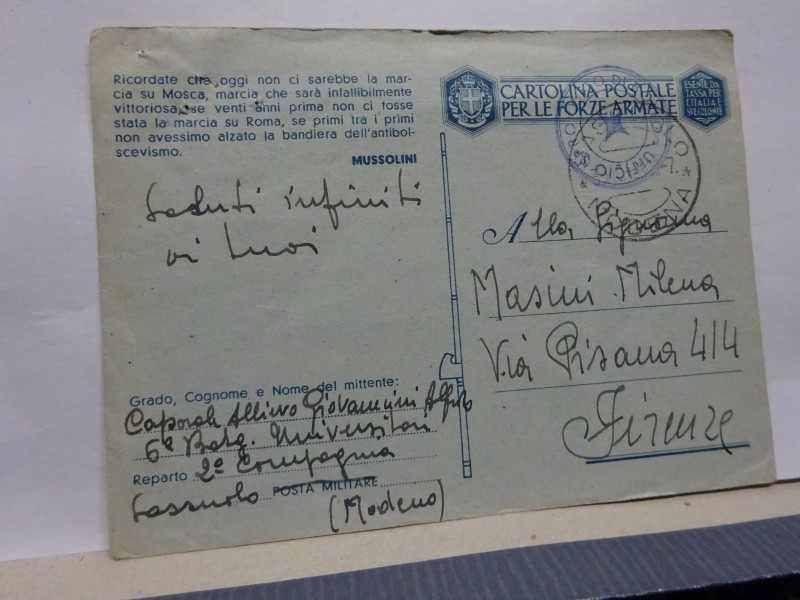 Ricordate che oggi non ci sarebbe la mar-
cia su Mosca, marcia che sarà infallibilmente
vittoriosa, se venti anni prima non ci fosse
stata la marcia su Roma, se primi tra i primi
non avessimo alzato la bandiera dell'antibol-
scevismo.
MUSSOLINI
Saluti infiniti
ai tuoi
Grado, Cognome e Nome del mittente:
Caporale Allievo Giovannini Alfredo
6º Batg. Universitari
Reparto 2ª Compagnia
Sassuolo POSTA MILITARE
(Modena)
CARTOLINA POSTALE
PER LE FORZE ARMATE
ESENTE DA
TASSA PER
L'ITALIA E
SVE COLONIE
UFFICIO
Alla Signorina
Masini Milena
Via Pisana 414
Firenze